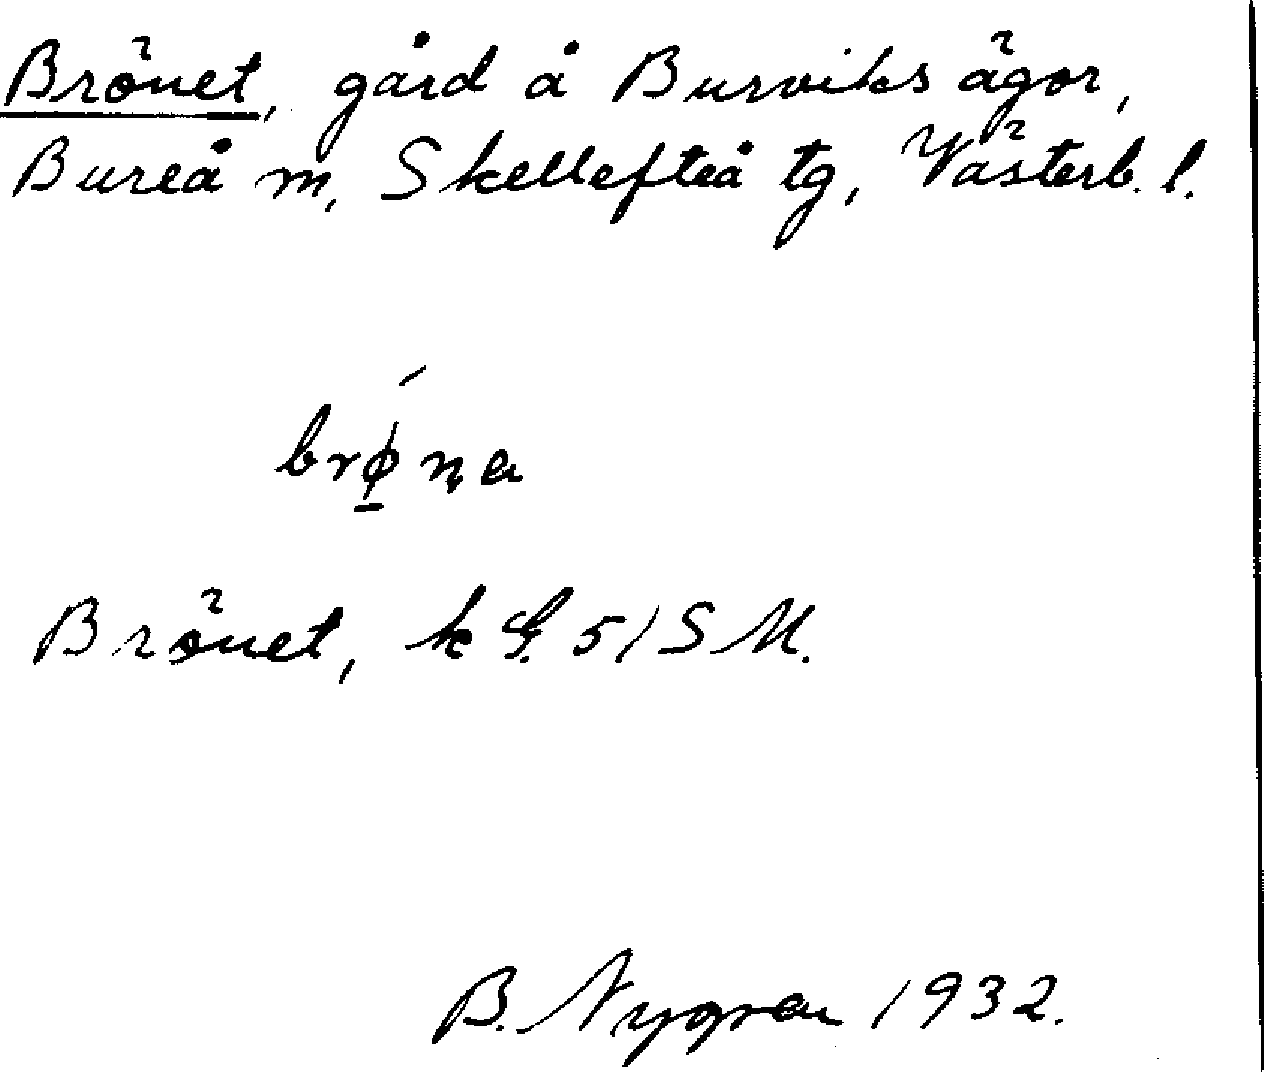 Brönet, gård å Burviks ägor,
Bureå m, Skellefteå tg, Västerb. l.
brǿ̲n̥a
Brönet, k G. 51 SM.
B. Nygren 1932.